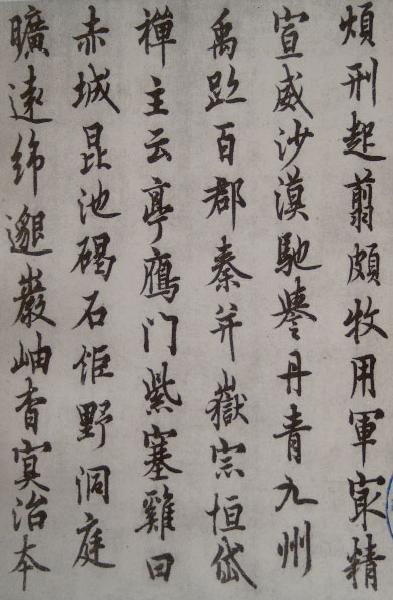 煩刑起翦頗牧用軍最精
宣威沙漠馳譽丹青九州
禹跡百郡秦并嶽宗恒岱
禪主云亭鴈門紫塞雞田
赤城昆池碣石鉅野洞庭
曠遠綿邈巖岫杳冥治本